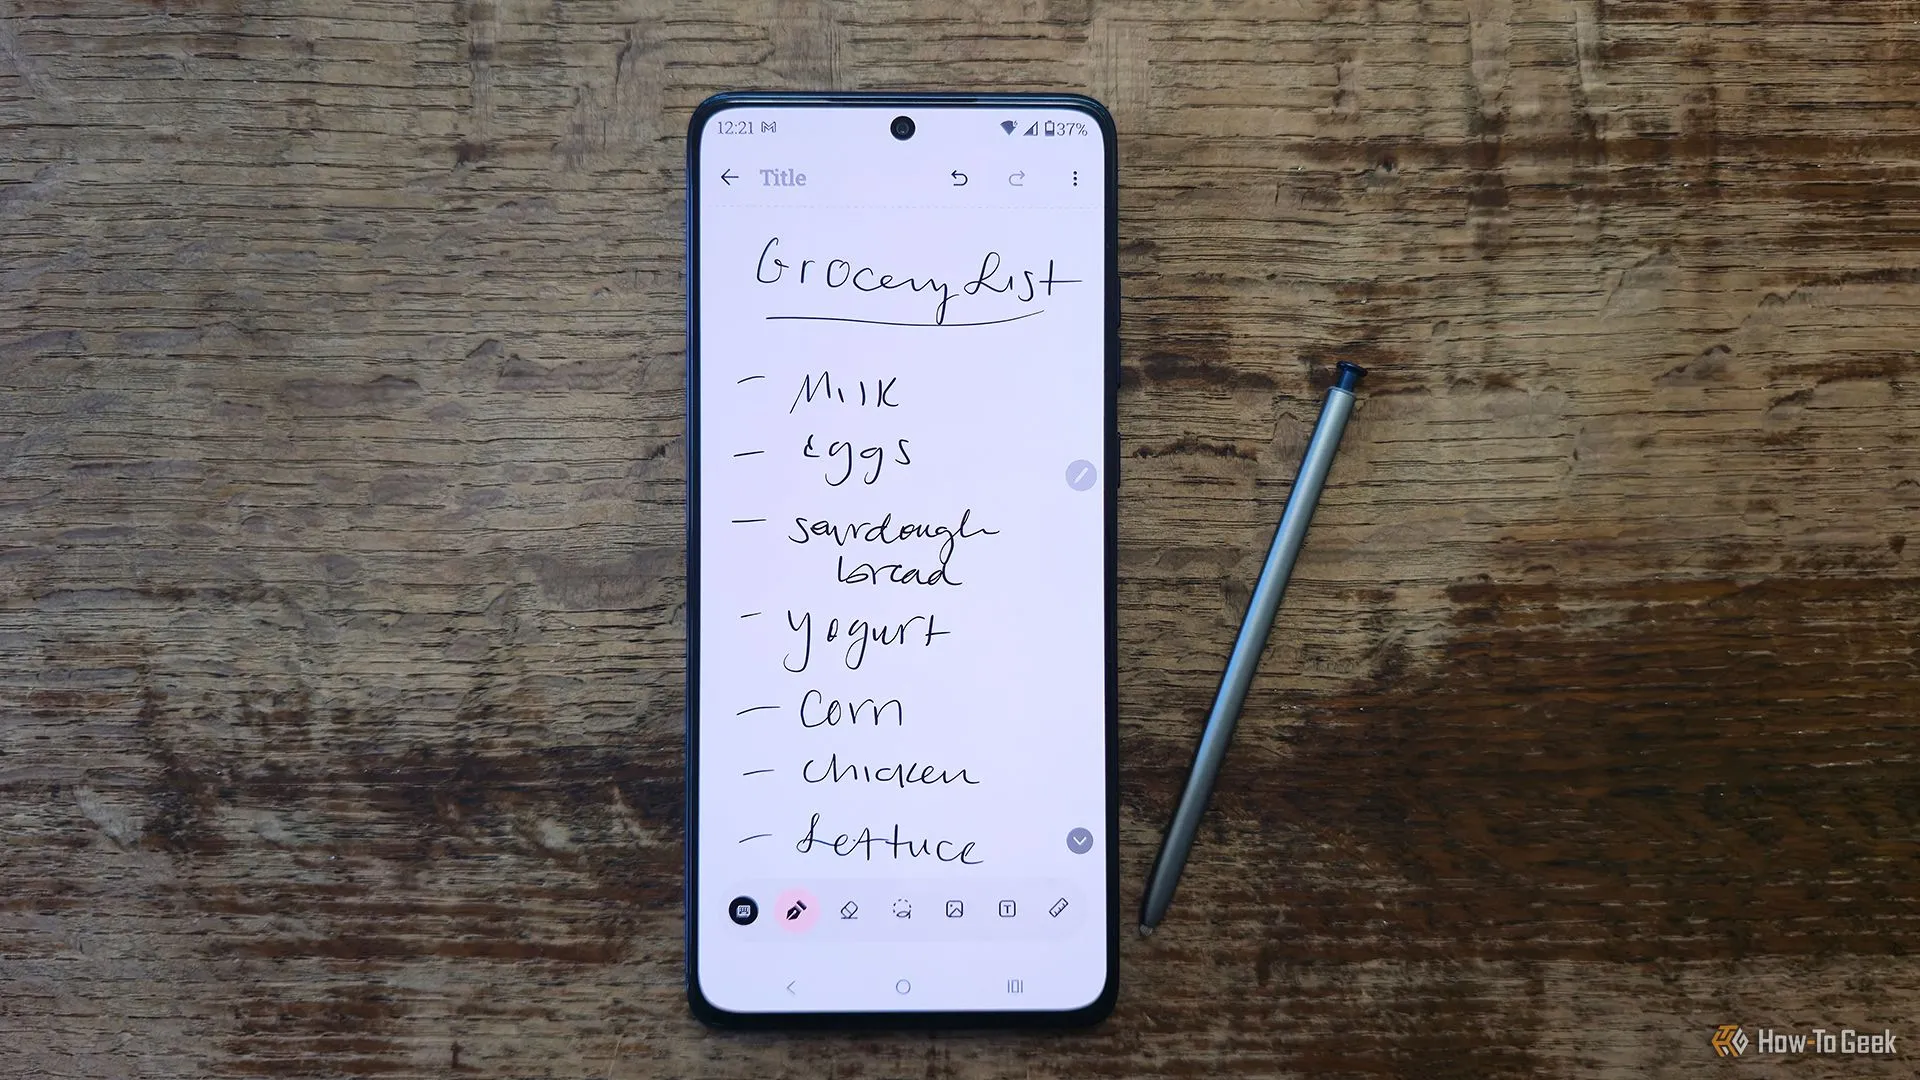 12:21
37%
Title
Grocery List
- Milk
- eggs
- sourdough
bread
- yogurt
- Corn
- chicken
- Lettuce
T
How-To Geek